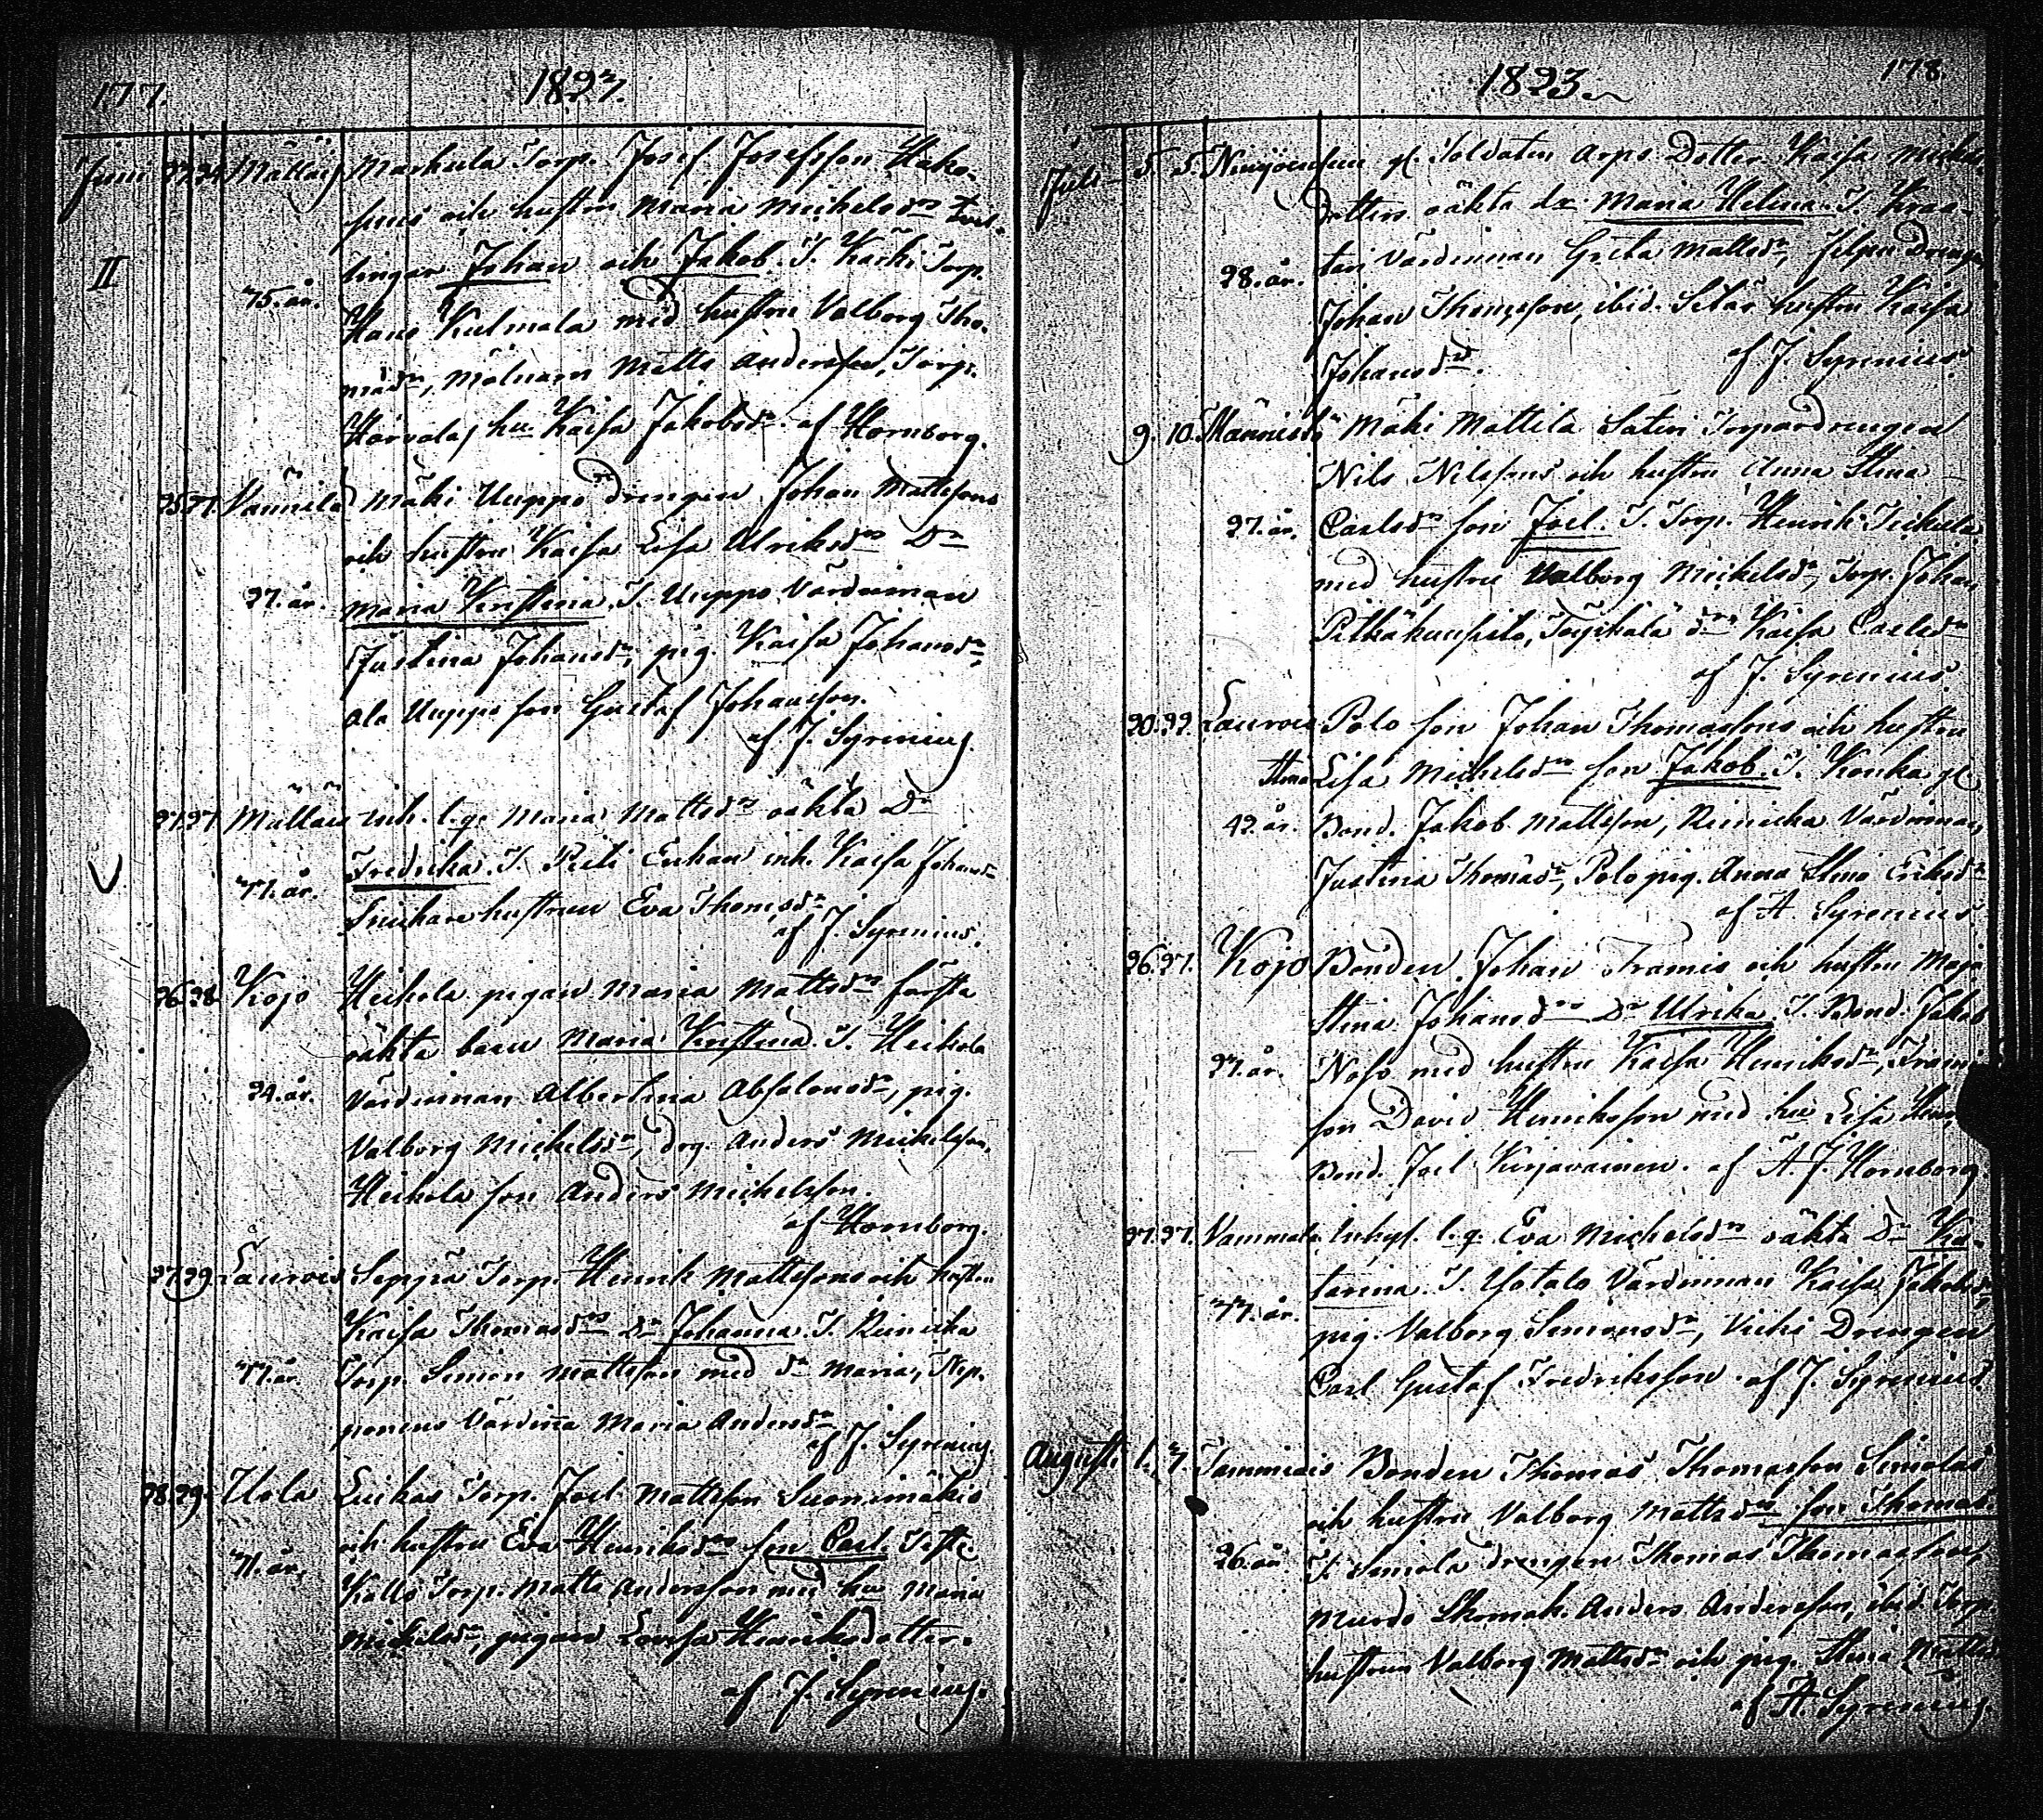 177.
1823.
Juni 23. 24. Mälläis Markula Torp. Josef Josefsson Hako-
sens och hustru Maria Michelsdrs Tvil-
II
lingar Johan och Jakob. T. Kärki Torp.
35. år.
Hans Kulmala med hustru Valborg Tho-
masdr, Mölnarn Matts Andersson, Torp.
hu Kaisa Jakobsdr. af Hornborg.
25. 27. Vännilä Mäki Uuppo drengen Johan Mattssons
och hustru Kaisa Lisa Ulriksdrs Dr
27. år.
Maria Kristina. T. Uuppo Värdinnan
Justina Johansdr, pig. Kaisa Johansdr,
Ala Uuppo son Gustaf Johansson.
af J. Syrenius.
27. 27. Mälläis inh. l.q. Maria Mattsdrs oäkta Dr
Fredrika. T. inh. Kaisa Johansdr
37. år.
hustrun Eva Thomsdr
af J. Syrenius.
26. 28. Kojo Heikola pigan Maria Mattsdrs första
oäkta barn Maria Kristina. T. Heikola
24. år.
Värdinnan Albertina Absalonsdr, pig.
Valborg Michelsdr, drg. Anders Michelsson,
Heikola son Anders Michelsson.
af Hornborg.
27. 29. Laurois Seppä Torp. Henrik Mattssons och hustru
Kaisa Thomasdrs Dr Johanna. T. Reinicka
37. år.
Torp. Simon Mattsson med dr Maria, Nep-
ponens Värdinna Maria Andersdr
af J. Syrenius.
28. 29. Uola Torp. Joel Mattsson Suonimäkis
och hustru Eva Henriksdrs son Carl. Test:
31. år.
Kallo Torp. Matts Andersson med hu Maria
Michelsdr, pigan Lovisa Henriksdotter.
af J. Syrenius.
1823.
178
Juli 5. 5. gl. Soldaten Arps Dotter Kaisa Michels-
dotters oäkta dr. Maria Helena. T. Kraa-
tari Värdinnan Greta Mattsdr, drengen
28. år.
Johan Thomsson, ibid. hustru Kaisa
Johansdr.
af J. Syrenius.
9. 10. Männistö Mäki Mattila Säteri Torpardrengen
Nils Nilssons och hustru Anna Stina
27. år.
Carlsdrs son Joel. T. Torp. Henrik
med hustru Valborg Michelsdr, Torp. Johan
dr Kaisa Carlsdr
af J. Syrenius.
20. 22. Laurois Polo son Johan Thomassons och hustru
Stina Lisa Michelsdrs son Jakob. T. Konka gl
42. år.
Bond. Jakob Mattsson, Reinicka Värdinnan
Justina Thomasdr, Polo pig. Anna Stina Eriksdr
af A. Syrenius
26. 27. Kojo Bonden Johan Frames och hustru Maja
Stina Johansdrs Dr Ulrika. T. Bond. Jakob
27. år.
med hustru Kaisa Henriksdr,
son David Henriksson med hu Lisa
Bond. Joel Kirjavainen. af A. J. Hornborg.
27. 27. Vammala Inhys. l.q. Eva Michelsdrs oäkta Dr Ka-
tarina. T. Yotala Värdinnan Kaisa Jakobsdr,
37. år.
pig. Valborg Simonsdr, Vicki Drengen
Carl Gustaf Fredriksson. af J. Syrenius.
Augusti 1. 3. Tammiais Bonden Thomas Thomasson Simolas
och hustru Valborg Mattsdrs son Thomas.
26. år.
T. Simola drengen Thomas Thomasson,
Murdo Skomak. Anders Andersson, ibid. Torp.
hustrun Valborg Mattsdr och pig. Stina Mattsdr
af A. Syrenius.